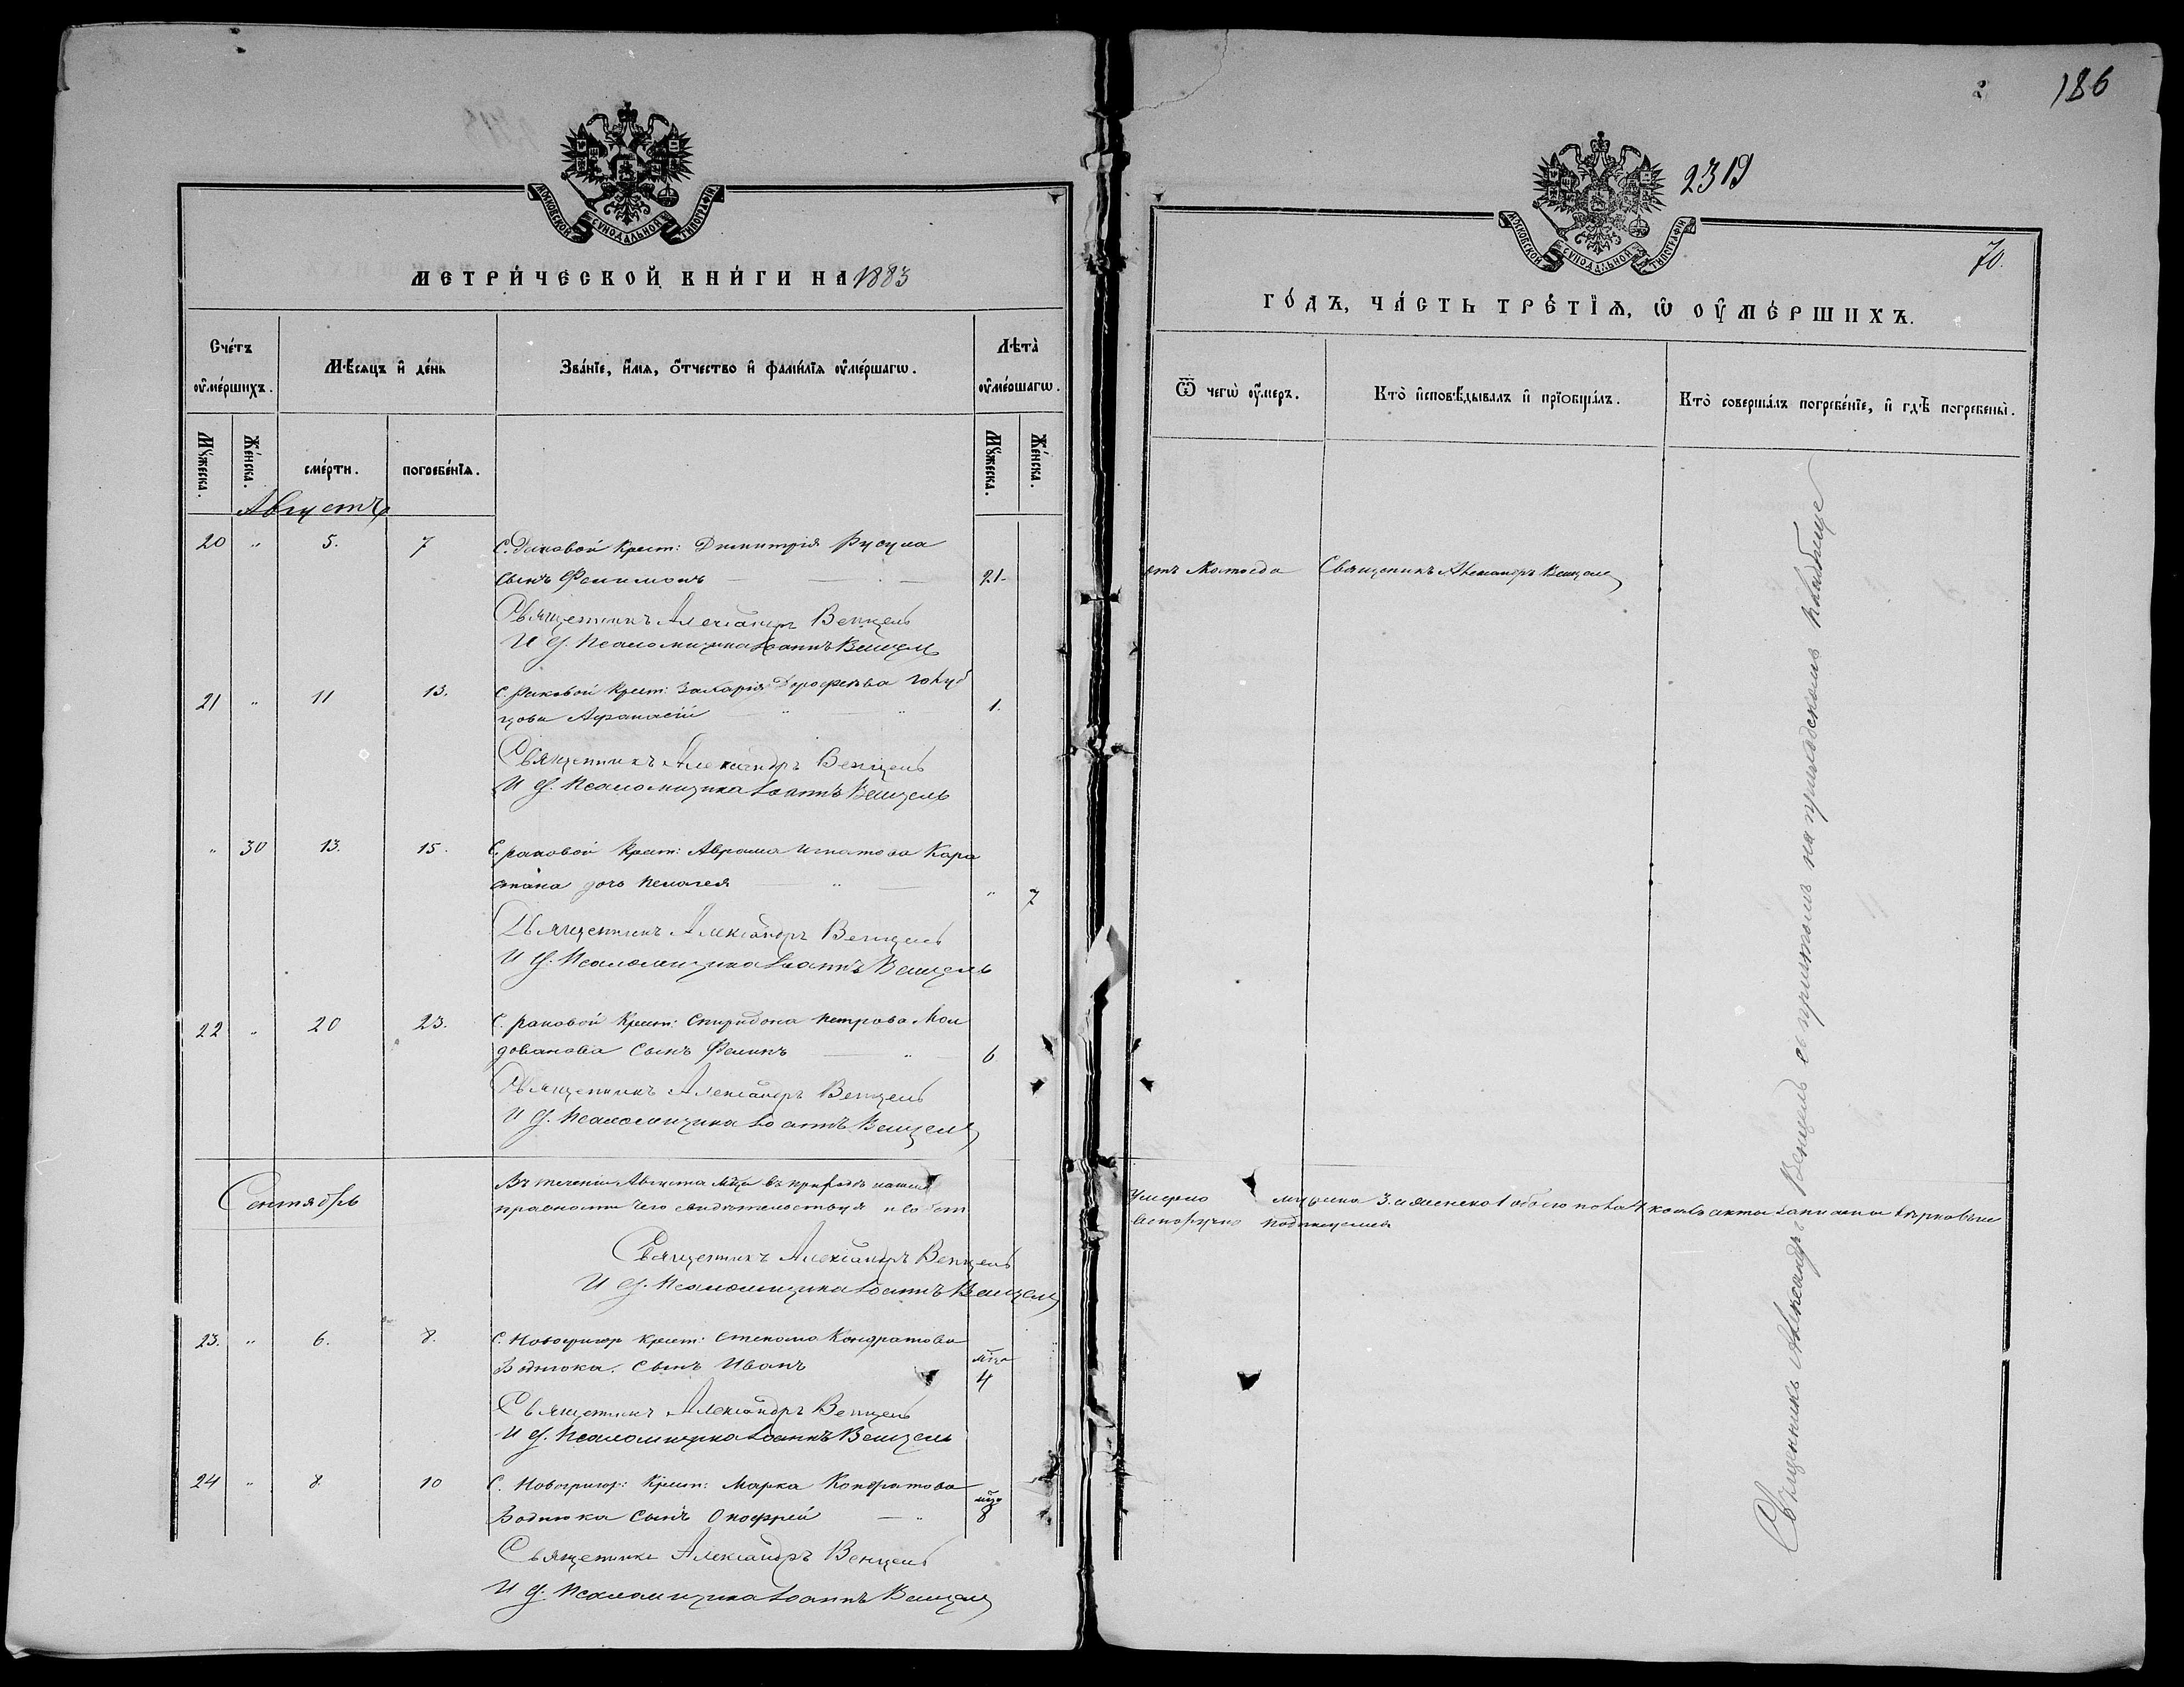 МОСКОВСКОЙ СѴНОДАЛЬНОЙ ТИПОГРАФІИ
МЕТРИ́ЧЕСКОЙ КНИ́ГИ НА 1883
Сче́тъ оу҆ме́ршихъ.
Мѣ́сяцъ и҆ де́нь
Зва́нїе, и҆́мѧ, ѻ҆́тчество и҆ фами́лїѧ оу҆ме́ршагѡ.
Лѣта̀ оу҆ме́ршагѡ.
Мꙋ́жеска.
Же́нска.
сме́рти.
погребе́нїѧ.
Мꙋ́жеска.
Же́нска.
Августъ
20 " 5. 7 С. Раковой Крест: Димитрія Русула
сынъ Филимонъ — — 21.
Священникъ Александръ Венцель
И. д. Псаломщика Іоаннъ Венцель
21 " 11 13. С. Раковой Крест: Захарія Дорофеева Голуб
цова Афанасій — " — " 1.
Священникъ Александръ Венцель
И. д. Псаломщика Іоаннъ Венцель
" 30 13. 15. С. Раковой Крест: Аврама Игнатова Кара
дочь Пелагея — " — " 7
Священникъ Александръ Венцель
И. д. Псаломщика Іоаннъ Венцель
22 " 20 23. С. Раковой Крест: Спиридона Петрова Мол
дованова сынъ Филипъ — " 6
Священникъ Александръ Венцель
И. д. Псаломщика Іоаннъ Венцель
Сентябрь
Въ теченіи Августа мѣца въ приходѣ нашемъ
правности чего свидѣтельствуя и собст
Священникъ Александръ Венцель
И. д. Псаломщика Іоаннъ Венцель
23. " 6. 8. С. Новогригор Крест: Кондратова
Воднюка. сынъ Иванъ мѣц 4
Священникъ Александръ Венцель
И. д. Псаломщика Іоаннъ Венцель
24 " 8. 10 С. Новогригор: Крест: Марка Кондратова
Воднюка сынъ Онофрей — " мѣц 8
Священникъ Александръ Венцель
И. д. Псаломщика Іоаннъ Венцель
186
2319
МОСКОВСКОЙ СѴНОДАЛЬНОЙ ТИПОГРАФІИ
70.
ГО́ДЪ, ЧА́СТЬ ТРЕ́ТЇѦ, Ѡ҆ ОУ҆МЕ́РШИХЪ.
Ѿ чегѡ̀ оу҆́меръ.
Кто̀ и҆сповѣ́дывалъ и҆ прїѡбща́лъ.
Кто̀ соверша́лъ погребе́нїе, и҆ гдѣ̀ погребены̀.
Священникъ Александръ Венцель
Священникъ Александръ Венцель съ причтомъ на приходскомъ кладбище
Умерло мужска 3. и женска 1 обоего пола 4 акты записаны вѣрно
венноручно подписуемся